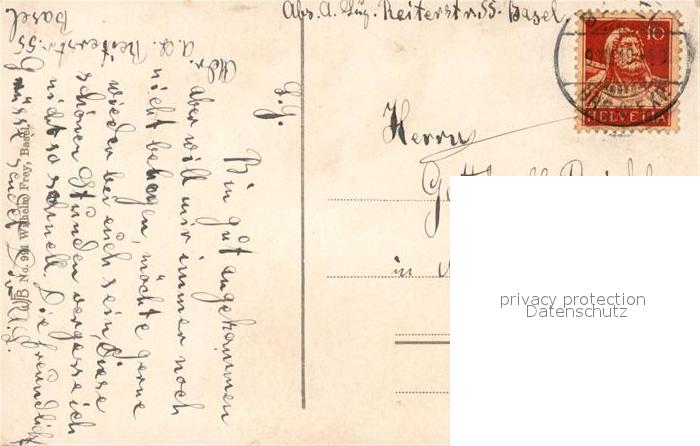 Abs. A. Reiterstr. 55. Basel.
10
HELVETIA
Herrn
in
privacy protection
Datenschutz
Bin gut angekommen
aber will mir immer noch
nicht behagen, möchte gerne
wieder bei euch sein, diese
schöner Stunden vergesse ich
nicht so schnell. Die freundlichst
Grüsse sendet Dir
Adr. A. G. Reiterstr. 55
Basel
No. Wilhelm Frey, Basel